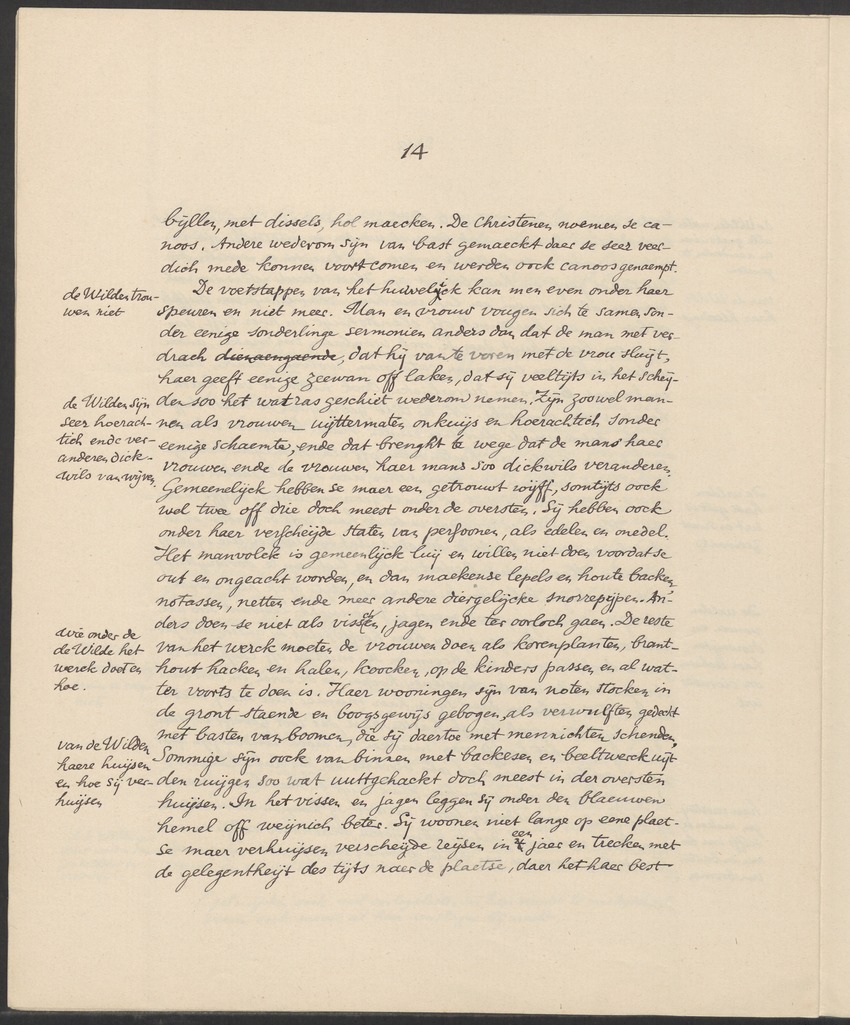 14
bijllen, met dissels, hol maecken. De Christenen noemen se ca-
noos. Andere wederom sijn van bast gemaeckt daer se seer veer-
dich mede konnen voortcomen en werden oock canoos genaempt.
de Wilden trou-
wen niet
De voetstappen van het huwelijck kan men even onder haer
speuren en niet meer. Man en vrouw vougen sich te samen son-
der eenige sonderlinge sermonien anders dan dat de man met ver-
drach dienaengaende, dat hij van te voren met de vrou sluijt,
haer geeft eenige zeewan off laken, dat sij veeltijts in het scheij-
de Wilden sijn
seer hoerach-
tich ende ver-
anderen dick-
wils van wijven
den soo het wat ras geschiet wederom nemen. Zijn zoowel man-
nen als vrouwen uijttermaten onkuijs en hoerachtich sonder
eenige schaemte, ende dat brenght te wege dat de mans haer
vrouwen ende de vrouwen haer mans soo dickwils veranderen.
Gemeenelijck hebben se maer een getrouwt wijff, somtijts oock
wel twee off drie doch meest onder de oversten. Sij hebben oock
onder haer verscheijde staten van persoonen, als edelen en onedel.
Het manvolck is gemeenlijck luij en willen niet doen voordat se
out en ongeacht worden, en dan maeken se lepels en houte backen,
notassen, netten ende meer andere diergelijcke snorrepijpen. An-
ders doen se niet als vissen, jagen ende ter oorloch gaen. De reste
wie onder de
de Wilde het
werck doet en
hoe.
van het werck moeten de vrouwen doen als korenplanten, brant-
hout hacken en halen, koocken, op de kinders passen en al wat-
ter voorts te doen is. Haer wooningen sijn van noten stocken in
de gront staende en boogsgewijs gebogen, als verwulften gedeckt
met basten van boomen, die sij daertoe met mennichten schenden.
van de Wilden
haere huijsen
en hoe sij ver-
huijsen
Sommige sijn oock van binnen met backesen en beeltwerck uijt
den ruijgen soo wat uuttgehackt doch meest in der oversten
huijsen. In het vissen en jagen leggen sij onder den blaeuwen
hemel off weijnich beter. Sij woonen niet lange op eene plaet-
se maer verhuijsen verscheijde reijsen in een jaer en trecken met
de gelegentheijt des tijts naer de plaetse, daer het haer best